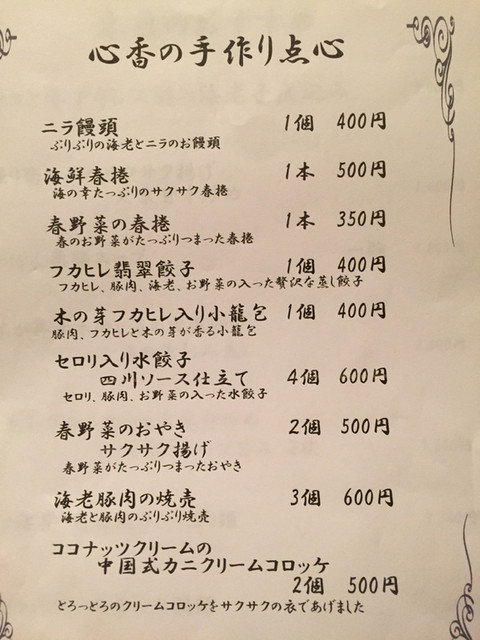 心香の手作り点心
ニラ饅頭 1個 400円
ぷりぷりの海老とニラのお饅頭
海鮮春捲 1本 500円
海の幸たっぷりのサクサク春捲
春野菜の春捲 1本 350円
春のお野菜がたっぷりつまった春捲
フカヒレ翡翠餃子 1個 400円
フカヒレ、豚肉、海老、お野菜の入った贅沢な蒸し餃子
木の芽フカヒレ入り小龍包 1個 400円
豚肉、フカヒレと木の芽が香る小籠包
セロリ入り水餃子
四川ソース仕立て 4個 600円
セロリ、豚肉、お野菜の入った水餃子
春野菜のおやき 2個 500円
サクサク揚げ
春野菜がたっぷりつまったおやき
海老豚肉の焼売 3個 600円
海老と豚肉のぷりぷり焼売
ココナッツクリームの
中国式カニクリームコロッケ
2個 500円
とろっとろのクリームコロッケをサクサクの衣であげました